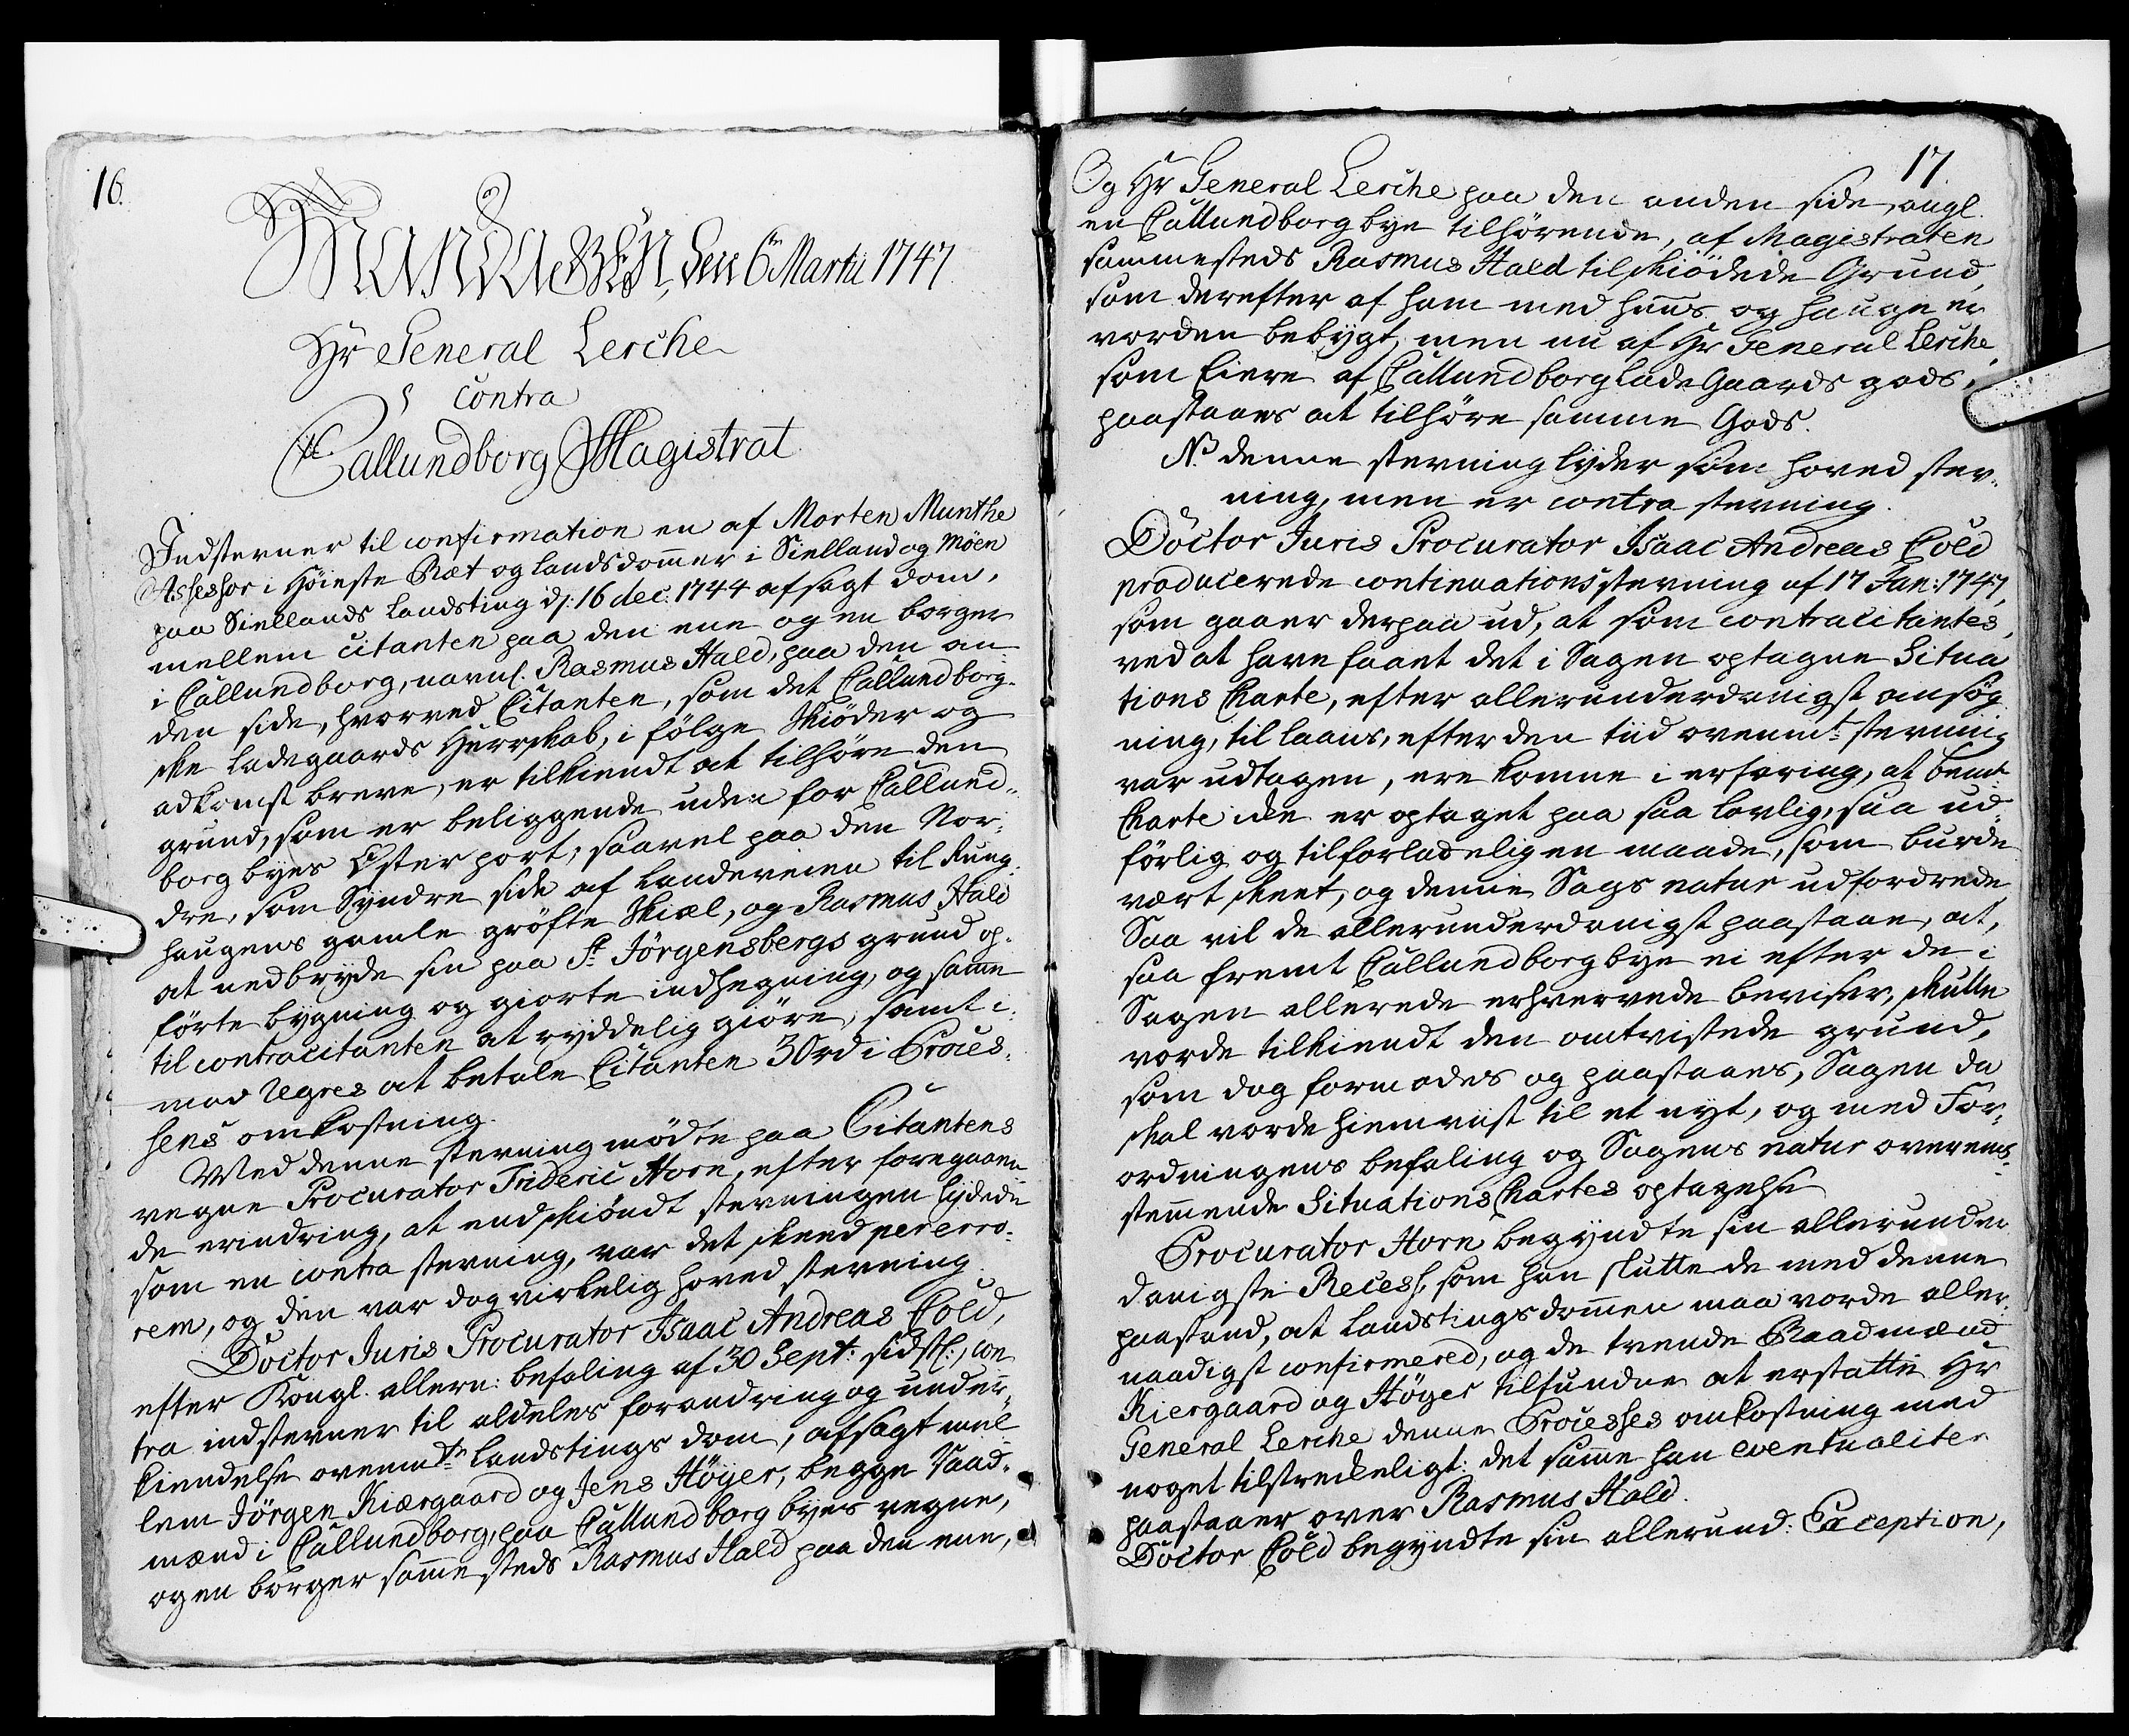 16.
Mandagen, den 6te Martii 1747
Hr General Lerche
contra
Callundborg Magistrat
Indstevner til confirmation en af Morten Munthe
Assessor i Höieste Ræt og landsdommer i Sielland og Möen
paa Siellands Landsting d: 16 dec: 1744 afsagt dom,
mellem citanten paa den ene og en borger
i Callundborg, navnl. Rasmus Hald, paa den an-
den side, hvorved Citanten, som det Callundborg-
ske Ladegaards Herskab, i fölge Skiöder og
adkomst breve, er tilkiendt at tilhöre den
grund, som er beliggende uden for Callund-
borg byes Öster port, saavel paa den Nor-
dre, som Syndre side af Landeveien til Rung-
haugens gamle gröfte Skiæl, og Rasmus Hald
at nedbryde sin paa St Jörgensbergs grund op-
förte bygning og giorte indhegning, og samme
til contracitanten at ryddelig giöre, samt i-
mod regres at betale Citanten 30 rd i Proces-
sens omkostning.
Med denne stevning mödte paa Citantens
vegne Procurator Frideric Horn, efter foregaaen-
de erindring, at endskiöndt stevningen lydede
som en contra stevning, var det skeed per erro-
rem, og den var dog virkelig hoved stevning.
Doctor Juris Procurator Isaac Andreas Cold,
efter Kongl. allern: befaling af 30 Sept: sidstl:, con
tra indstevner til aldeles forandring og under-
kiendelse ovenmte Landstings dom, afsagt mel
lem Jörgen Kiærgaard og Jens Höyer, begge Raad-
mænd i Callundborg, paa Callundborg byes vegne,
og en borger sammesteds Rasmus Hald paa den ene,
17
Og Hr General Lerche paa den anden side, angl.
en Callundborg bye tilhörende, af Magistraten
sammesteds Rasmus Hald tilskiödede Grund,
som derefter af ham med huus og hauge er
vorden bebygt, men nu af Hr General Lerche,
som Eiere af Callundborg Lade Gaards gods,
paastaaes at tilhöre samme Gods.
NB denne stevning lyder som hoved stev-
ning, men er contra stevning.
Doctor Juris Procurator Isaac Andreas Cold
producerede continuations stevning af 17 Jan: 1747,
som gaaer derpaa ud, at som contracitantes,
ved at have faaet det i Sagen optagne Situa
tions Charte, efter allerunderdanigst ansög
ning, til laans, efter den tiid ovenmte stevning
var udtagen, ere komne i erfaring, at bemte
Charte ikke er optaget paa saa lovlig, saa ud-
förlig og tilforladelig en maade, som burde
vært skeet, og denne Sags natur udfordrede
Saa vil de allerunderdanigst paastaae, at,
saa fremt Callundborg bye ei efter de i
Sagen allerede erhvervede beviser, skulle
vorde tilkiendt den omtvistede grund,
som dog formodes og paastaaes, Sagen da
skal vorde hiemviist til et nyt, og med For-
ordningens befaling og Sagens natur overeens-
stemmende Situations Chartes optagelse
Procurator Horn begyndte sin allerunder
danigste Recess, som han sluttede med denne
paastand, at Landstingsdommen maa vorde aller-
naadigst confirmered, og de tvende Raadmænd
Kiergaard og Höyer tilfunden at erstatte Hr
General Lerche denne Processes omkostning med
noget tilstrekkeligt: det samme han eventualiter
paastaaer over Rasmus Hald.
Doctor Cold begyndte sin allerund: Exception,